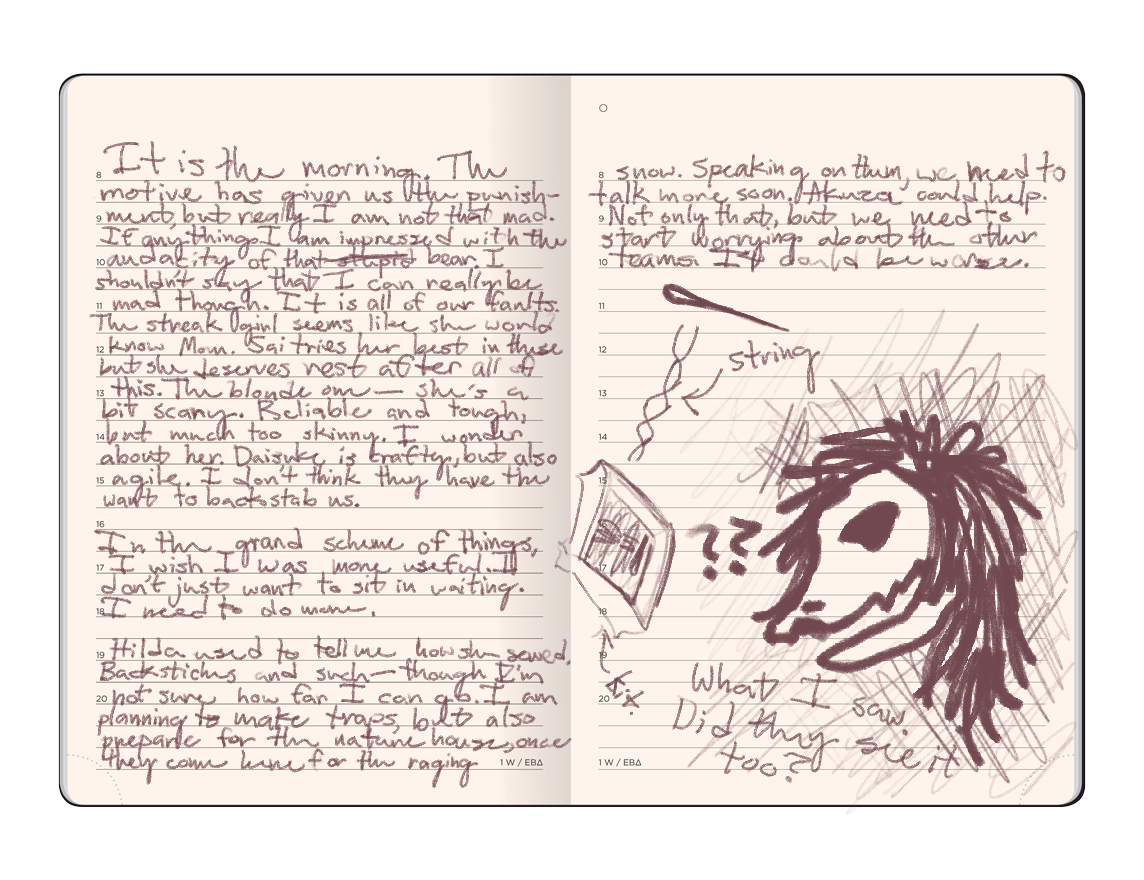 It is the morning. The
motive has given us the punish-
ment, but really I am not that mad.
If anything I am impressed with the
audacity of that stupid bear. I
shouldn't say that I can really be
mad though. It is all of our faults.
The streak girl seems like she would
know Mom. Sai tries her best in these
but she deserves rest after all of
this. The blonde one — she's a
bit scary. Reliable and tough,
but much too skinny. I wonder
about her. Daisuke is crafty, but also
agile. I don't think they have the
want to backstab us.
In the grand scheme of things,
I wish I was more useful. I
don't just want to sit in waiting.
I need to do more.
Hilda used to tell me how she sewed.
Backstiches and such — though I'm
not sure how far I can go. I am
planning to make traps, but also
prepare for the nature house, once
they come here for the raging
snow. Speaking on them, we need to
talk more soon. Akuza could help.
Not only that, but we need to
start worrying about the other
teams. It could be worse.
string
??
fix.
What I saw
Did they see it
too?
8
9
10
11
12
13
14
15
16
17
18
19
20
1 W / EBΔ
8
9
10
11
12
13
14
15
16
17
18
19
20
1 W / EBΔ